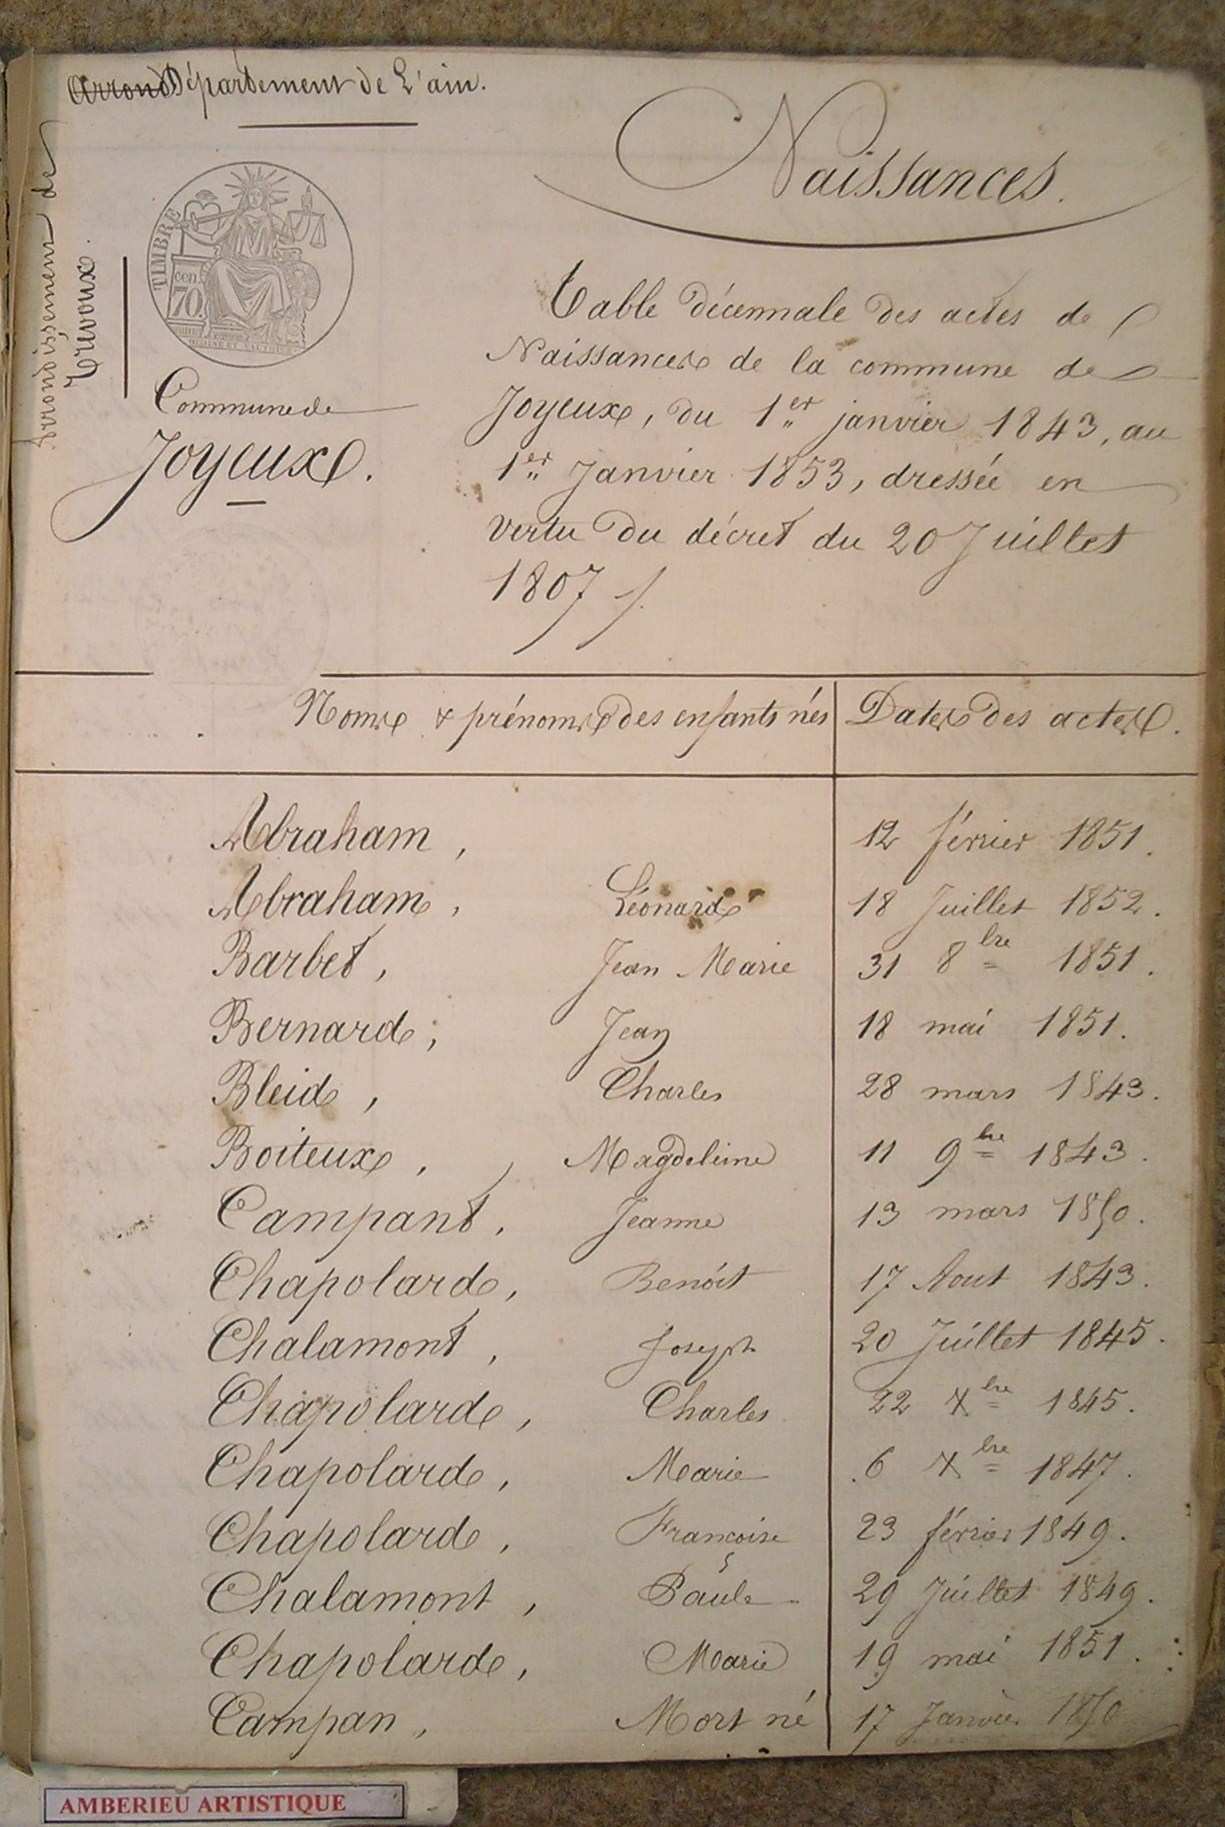 Département de L'ain.
Arrondissement de
Trevoux.
TIMBRE
cen.
70.
Commune de
Joyeux.
Naissances.
Table décennale des actes de
Naissances de la commune de
Joyeux, du 1er janvier 1843, au
1er Janvier 1853, dressée en
vertu du décret du 20 Juillet
1807 /.
Noms & prénoms des enfants nés Dates des actes.
Abraham, 12 février 1851.
Abraham, Léonard 18 Juillet 1852.
Barbet, Jean Marie 31 8bre 1851.
Bernard, Jean 18 mai 1851.
Bleid, Charles 28 mars 1843.
Boiteux, Magdeleine 11 9bre 1843.
Campant, Jeanne 13 mars 1850.
Chapolard, Benoit 17 Aout 1843.
Chalamont, Joseph 20 Juillet 1845.
Chapolard, Charles 22 Xbre 1845.
Chapolard, Marie 6 Xbre 1847.
Chapolard, Françoise 23 février 1849.
Chalamont, Paule 29 Juillet 1849.
Chapolard, Marie 19 mai 1851.
Campan, Mort né 17 Janvier 1850
AMBERIEU ARTISTIQUE